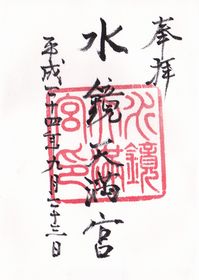 奉拝
水鏡天満宮
平成二十四年九月二十三日
水鏡
天満
宮印